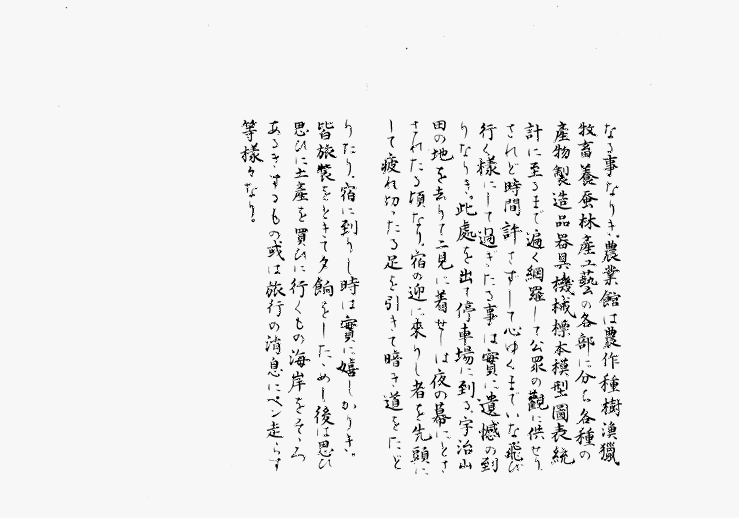 なる事なりき。農業館は農作種樹漁獵
牧畜養蚕林産工藝の各部に分ち各種の
産物製造品器具機械標本模型圖表統
計に至るまで遍く網羅して公眾の觀に供せり
されど時間許さずして心ゆくまでいな飛び
行く様にして過ぎたる事は實に遺憾の到
りなりき。此處を出て停車場に到る、宇治山
田の地を去りて二見に着せしは夜の幕にとざ
されたる頃なり、宿の迎に來りし者を先頭に
して疲れ切ったる足を引きて暗き道をたど
りたり、宿に到りし時は實に嬉しかりき。
皆旅裝をときて夕餉をしたゝめし後は思ひ
思ひに土産を買ひに行くもの海岸をそゞろ
あるきするもの或は旅行の消息にペン走らす
等様々なり。